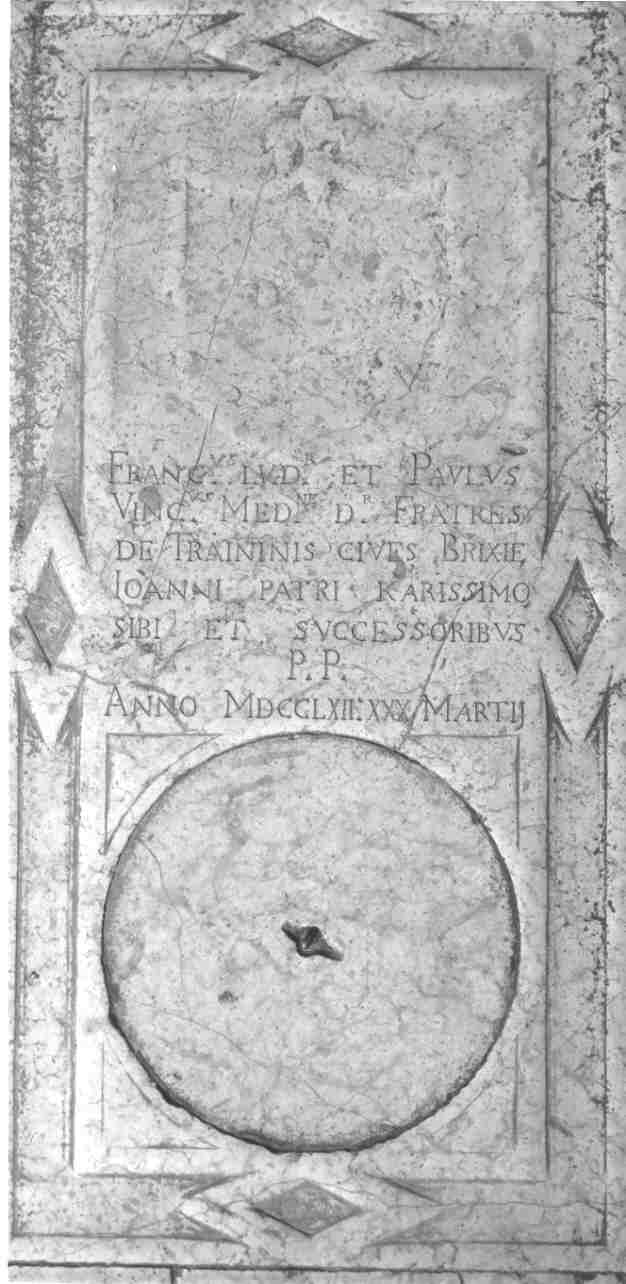 FRANC.VS LVD.R ET PAVLVS
VINC.VS MED.NÆ D.R FRATRES
DE TRAININIS CIVES BRIXIE
IOANNI PATRI KARISSIMO
SIBI ET SVCCESSORIBVS
P. P.
ANNO MDCCLXII: XXX MARTIJ